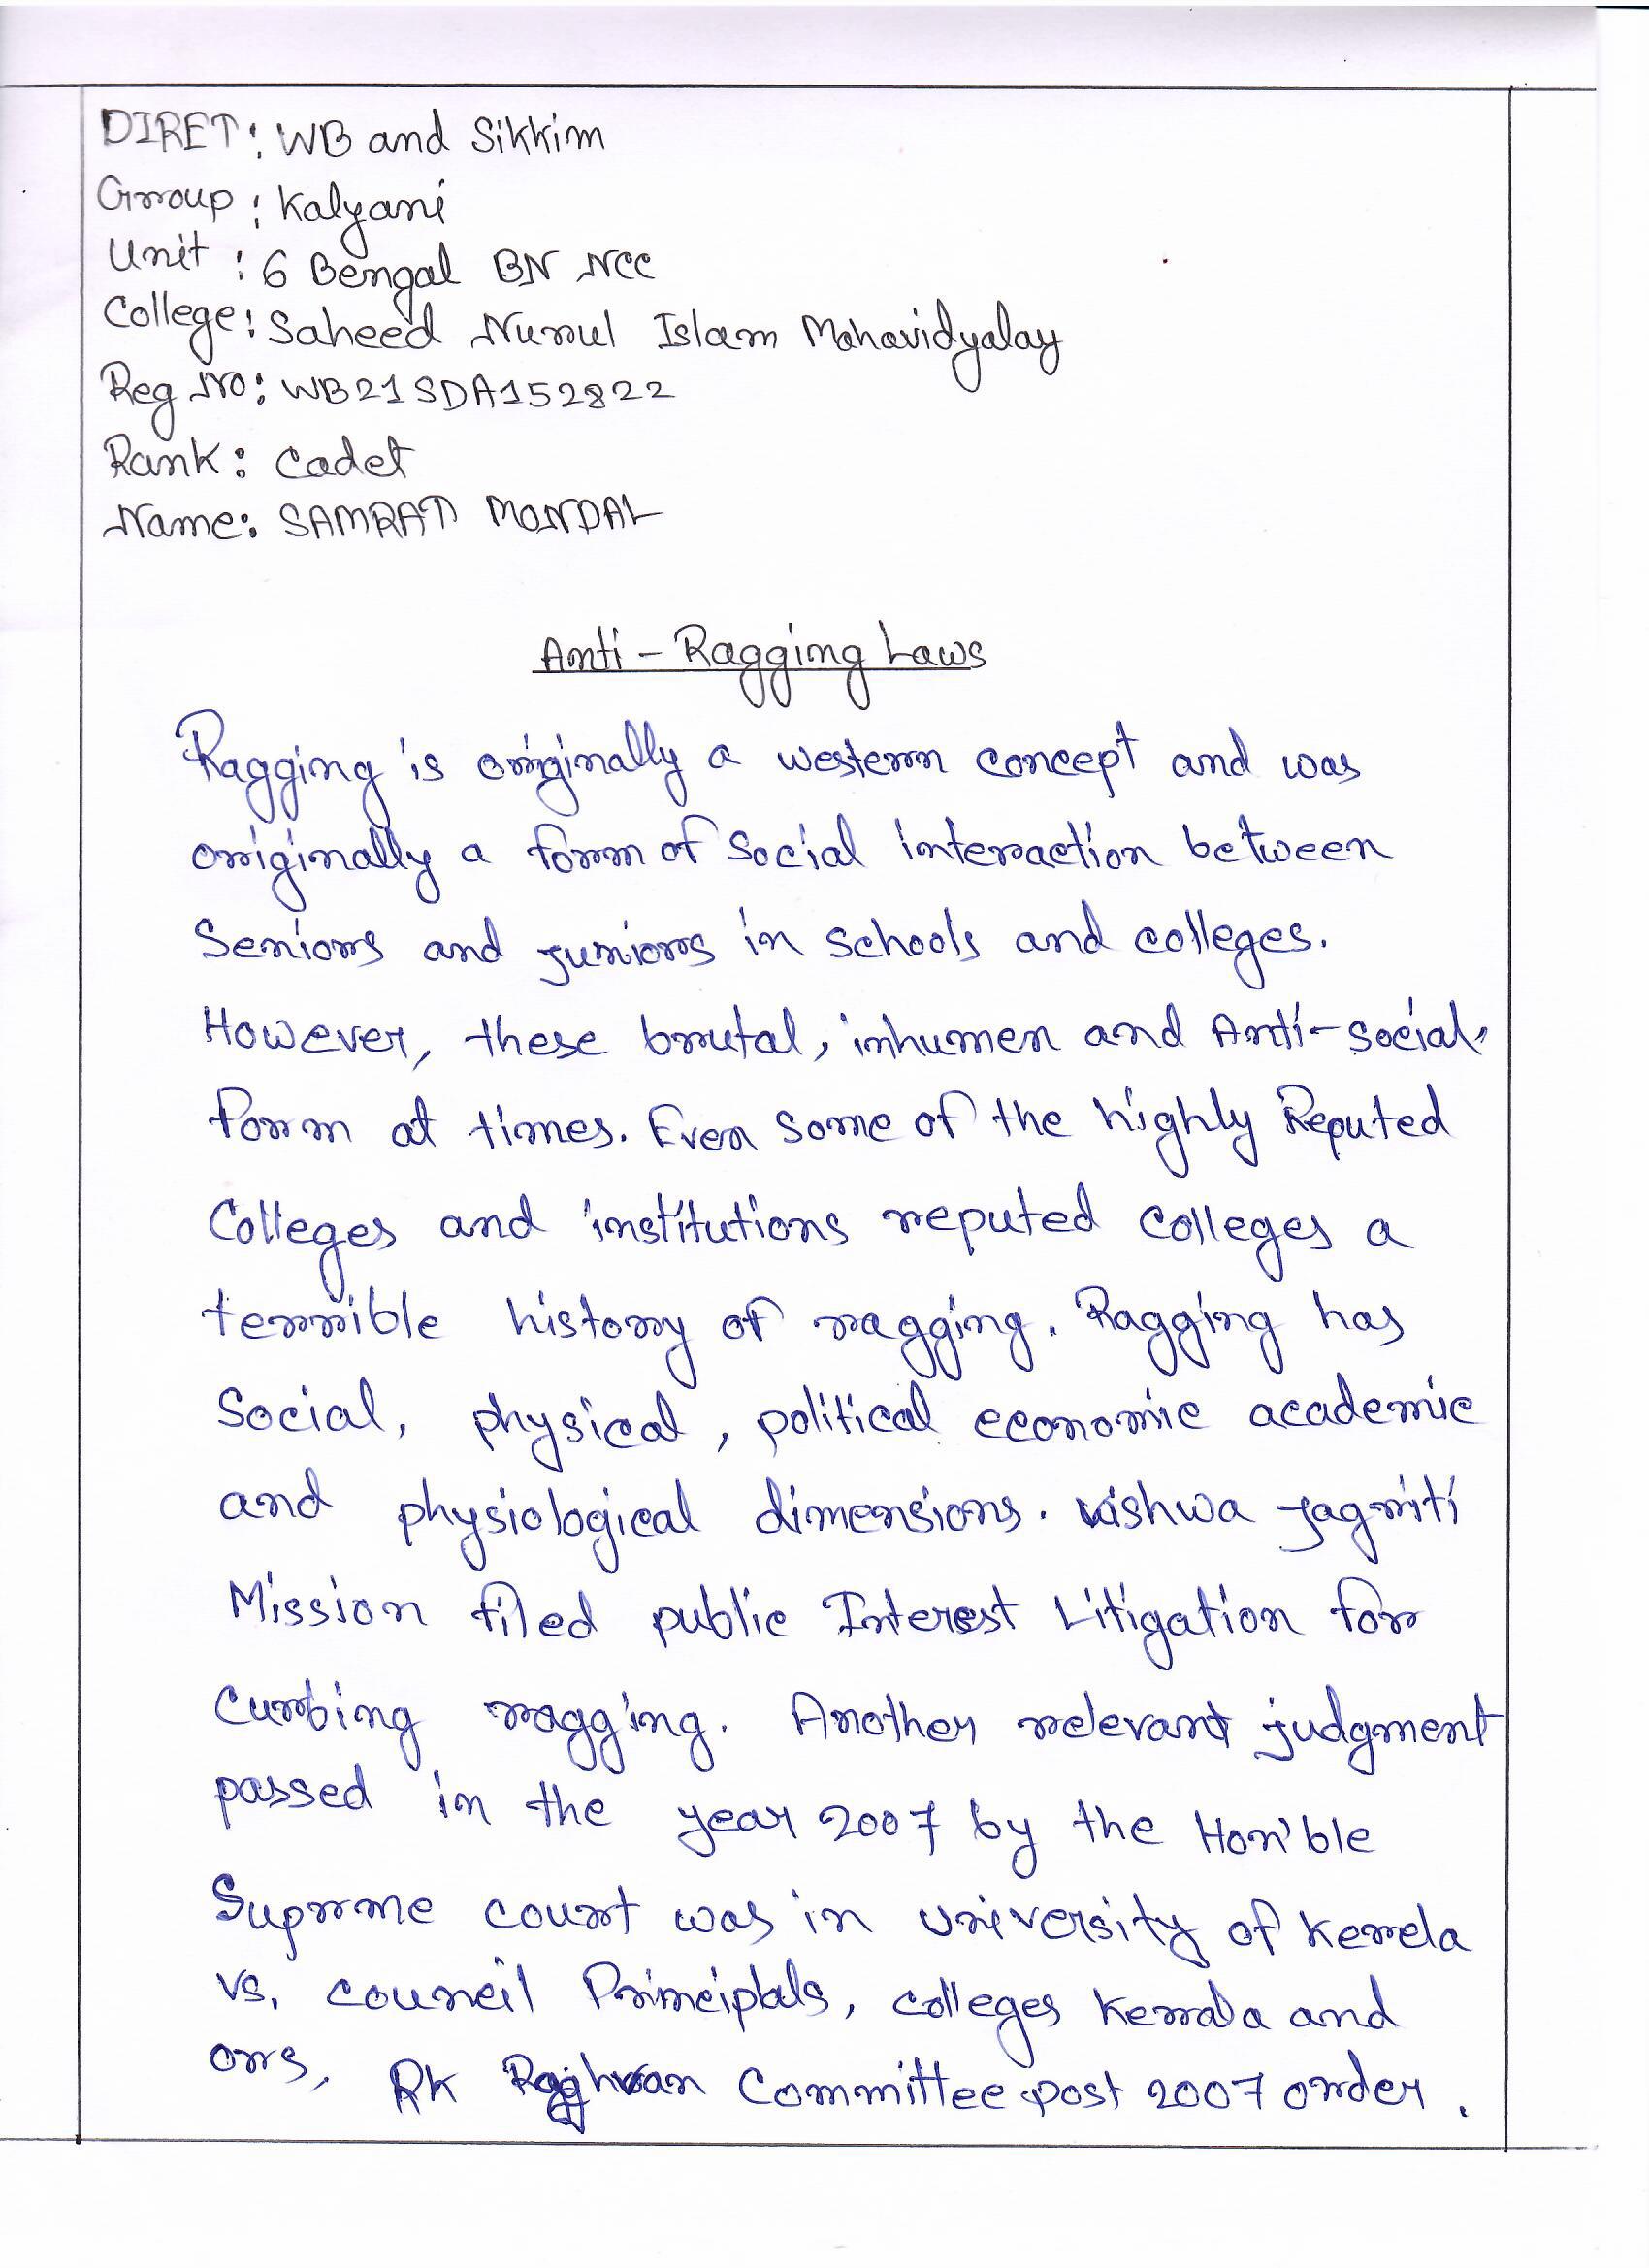 DIRET: WB and Sikkim
Group: Kalyani
Unit: 6 Bengal BN NCC
College: Saheed Nurul Islam Mahavidyalay
Reg No: WB21SDA152822
Rank: Cadet
Name: SAMRAT MONDAL
Anti-Ragging Laws
Ragging is originally a western concept and was
originally a form of Social interaction between
Seniors and juniors in schools and colleges.
However, these brutal, inhumen and Anti-social,
form at times. Even some of the highly Reputed
Colleges and institutions reputed colleges a
terrible history of ragging. Ragging has
Social, physical, political economic academic
and physiological dimensions. Vishwa jagriti
Mission filed public Interest Litigation for
Curbing ragging. Another relevant judgment
passed in the year 2007 by the Hon'ble
Suprme court was in University of Kerela
vs. council Principals, colleges Kerala and
ors, RK Raghvan Committee post 2007 order.